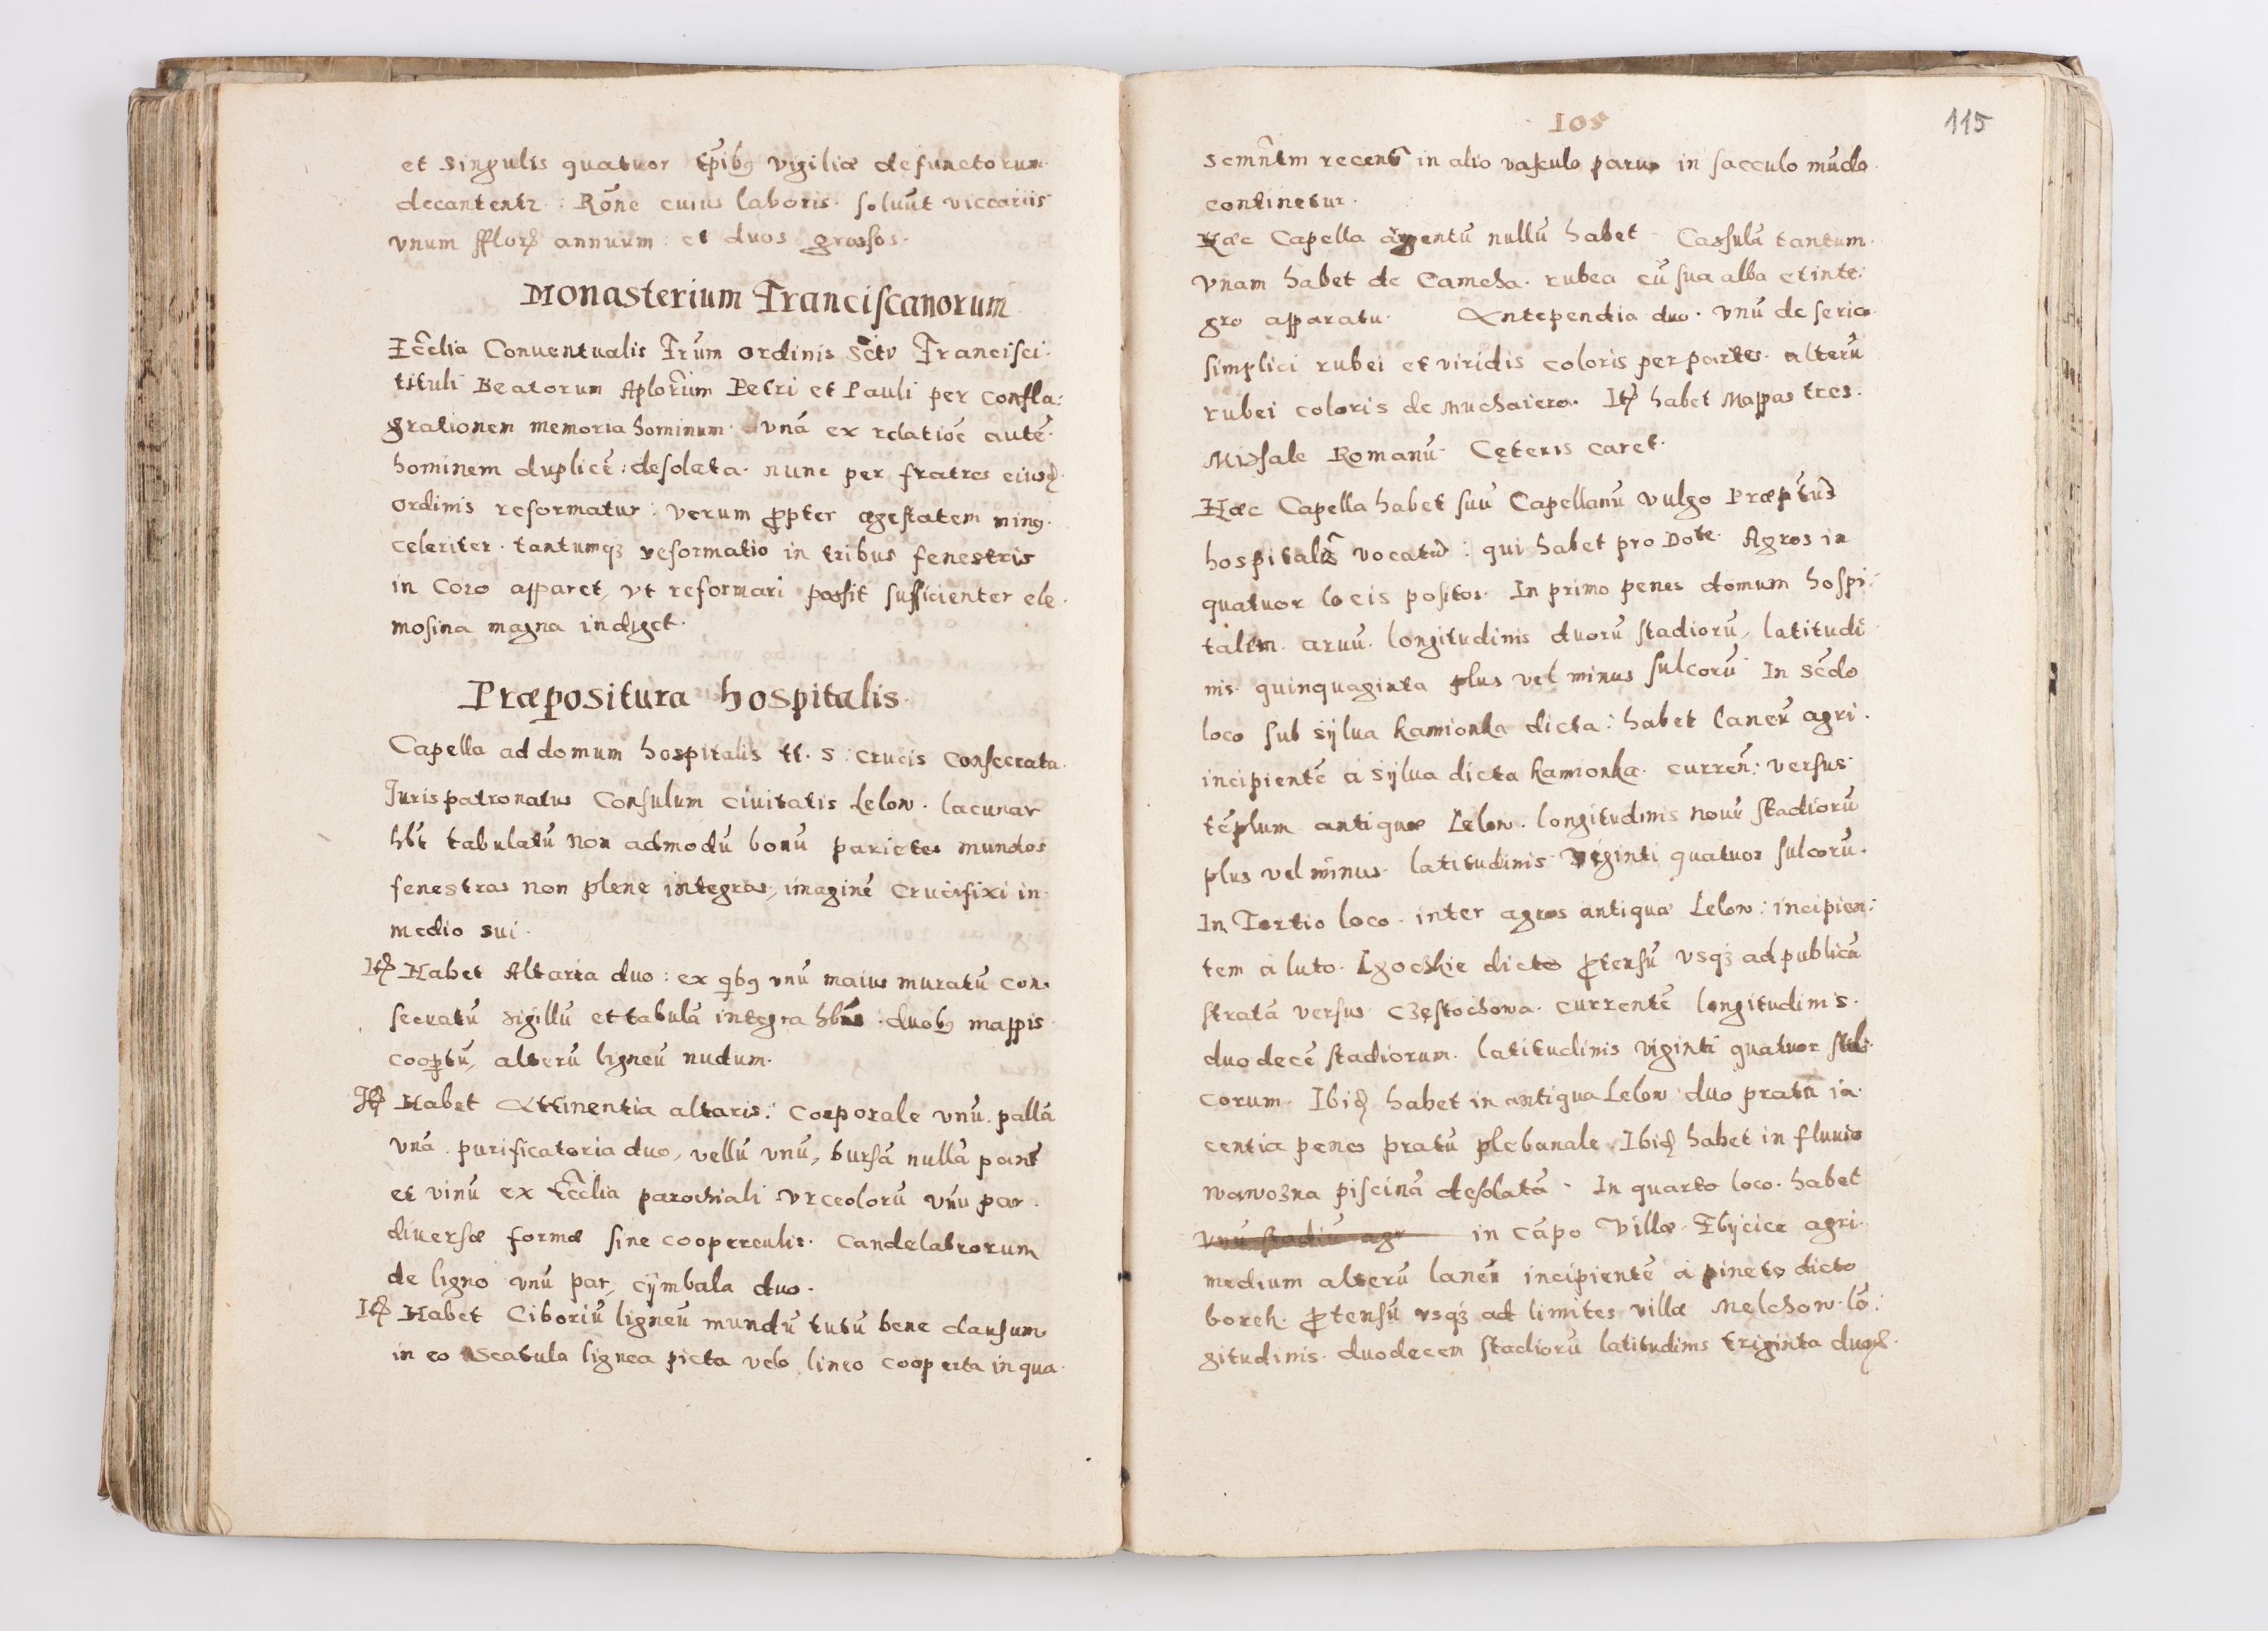 et singulis quatuor tp̄ibꝫ vigiliæ defunctorum
decantentr : Rōne cuius laboris soluūt viccariis
vnum fflorꝫ annuum et duos grossos.
Monasterium Franciscanorum
Eccl̄ia Conuentualis Fr̄um ordinis S̄cti Francisci
tituli Beatorum Aplor̄um Petri et Pauli per confla:
grationem memoria hominum vnā ex relatiōe autē
hominem duplicē : desolata nunc per fratres eiusꝺ
ordinis reformatur : verum ꝓpter ægestatem ning
celeriter tantumqꝫ reformatio in tribus fenestris
in Coro apparet, vt reformari possit sufficienter ele
mosina magna indiget.
Præpositura hospitalis
Capella ad domum hospitalis tt. S : Crucis Consecrata
Jurispatronatus Consulum ciuitatis Lelow. lacunar
hēt tabulatū non admodū bonū parietes mundos
fenestras non plene integras, imaginē Crucifixi in
medio sui.
Itꝫ Habet Altaria duo : ex qibꝫ vnū maius muratū con
secratū sigillū et tabulā integra hn̄s duobꝫ mappis
cooptū, alterū ligneū nudum.
Itꝫ Habet Attinentia altaris : Corporale vnū. pallā
vnā purificatoria duo, vellū vnū, bursā nullā panē
et vinū ex Eccl̄ia parochiali vrceolorū vnu par
diuersæ formæ sine cooperculis. Candelabrorum
de ligno vnū par, cÿmbala duo.
Itꝫ Habet Ciboriū ligneū mundū tutū bene clausum
in eo scatula lignea picta velo lineo cooperta in qua
105
115
scmn̄tm recens in alio vasculo paruo in sacculo mūdo
continetur.
Hæc Capella argentū nullū habet Cassulā tantum
vnam habet de Camcha rubea cū sua alba et inte:
gro apparatu. Antependia duo. vnū de serico
simplici rubei et viridis coloris per partes. alterū
rubei coloris de muchaiero. Itꝫ habet Mappas tres.
Missale Romanū Cęteris caret.
Hæc Capella habet suū Capellanū vulgo Præptus
hospitalis vocatū : qui habet pro Dote Agros in
quatuor locis positos. In primo penes domum hospi:
talem aruū. longitudinis duorū stadiorū, latitudi
nis quinquaginta plus vel minus sulcorū In sc̄do
loco sub sÿlua kamionka dicta : habet laneū agri.
incipientē à sÿlua dicta kamionka. curren̄ : versus
tēplum antiquæ Lelow. longitudinis nouē stadiorū
plus vel minus latitudinis viginti quatuor sulcorū.
In Tertio loco inter agros antiqua Lelow : incipien:
tem à luto Lgoczkie dicto ꝓtensū vsqꝫ ad publicā
stratā versus Częstochowa currentē longitudinis
duodecē stadiorum. latitudinis viginti quatuor sul:
corum. Ibiꝺ habet in antiqua Lelow duo prata ia
centia penes pratū plebanale. Ibiꝺ habet in fluuio
wawozna piscinā desolatā. In quarto loco. habet
vnū stadiū agr in cāpo Villæ Tbÿcice agri
medium alterū laneū incipientē à pineto dicto
borek. ꝓtensū vsqꝫ ad limites villæ Melchow lō:
gitudinis duodecem stadiorū latitudinis triginta